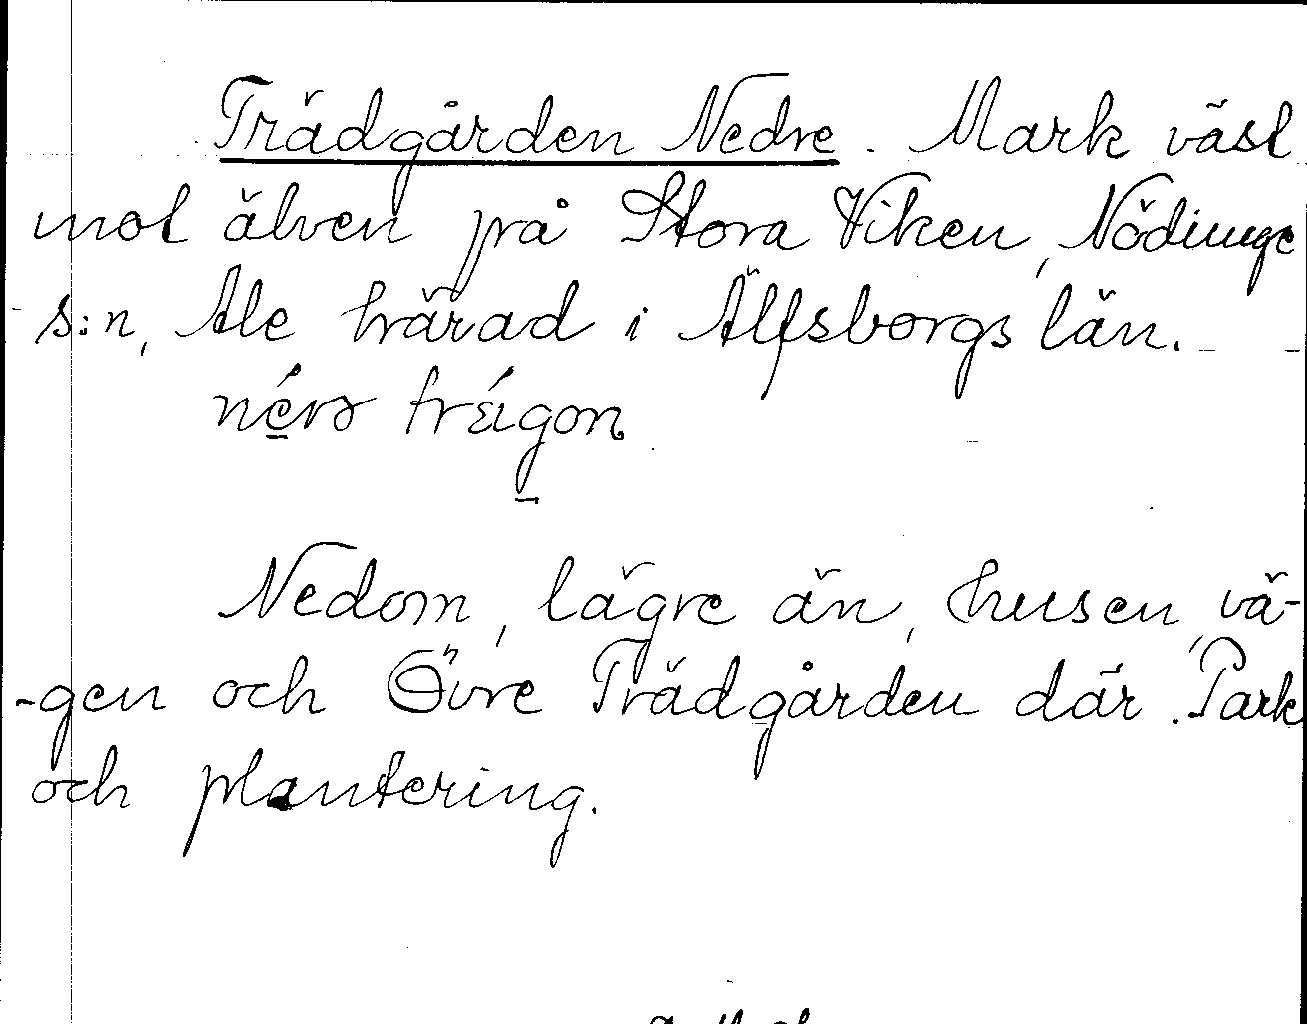 Trädgården Nedre. Mark väst
mot älven på Stora Viken, Nödinge
s:n, Ale härad i Älfsborgs län.
Nedom, lägre än, husen, vä-
-gen och Övre Trädgården där. Park
och plantering.